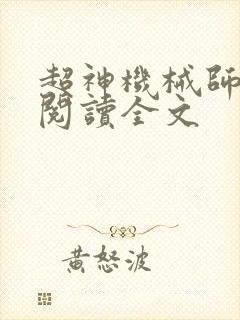 超神機械師
閱讀全文
黃怒波